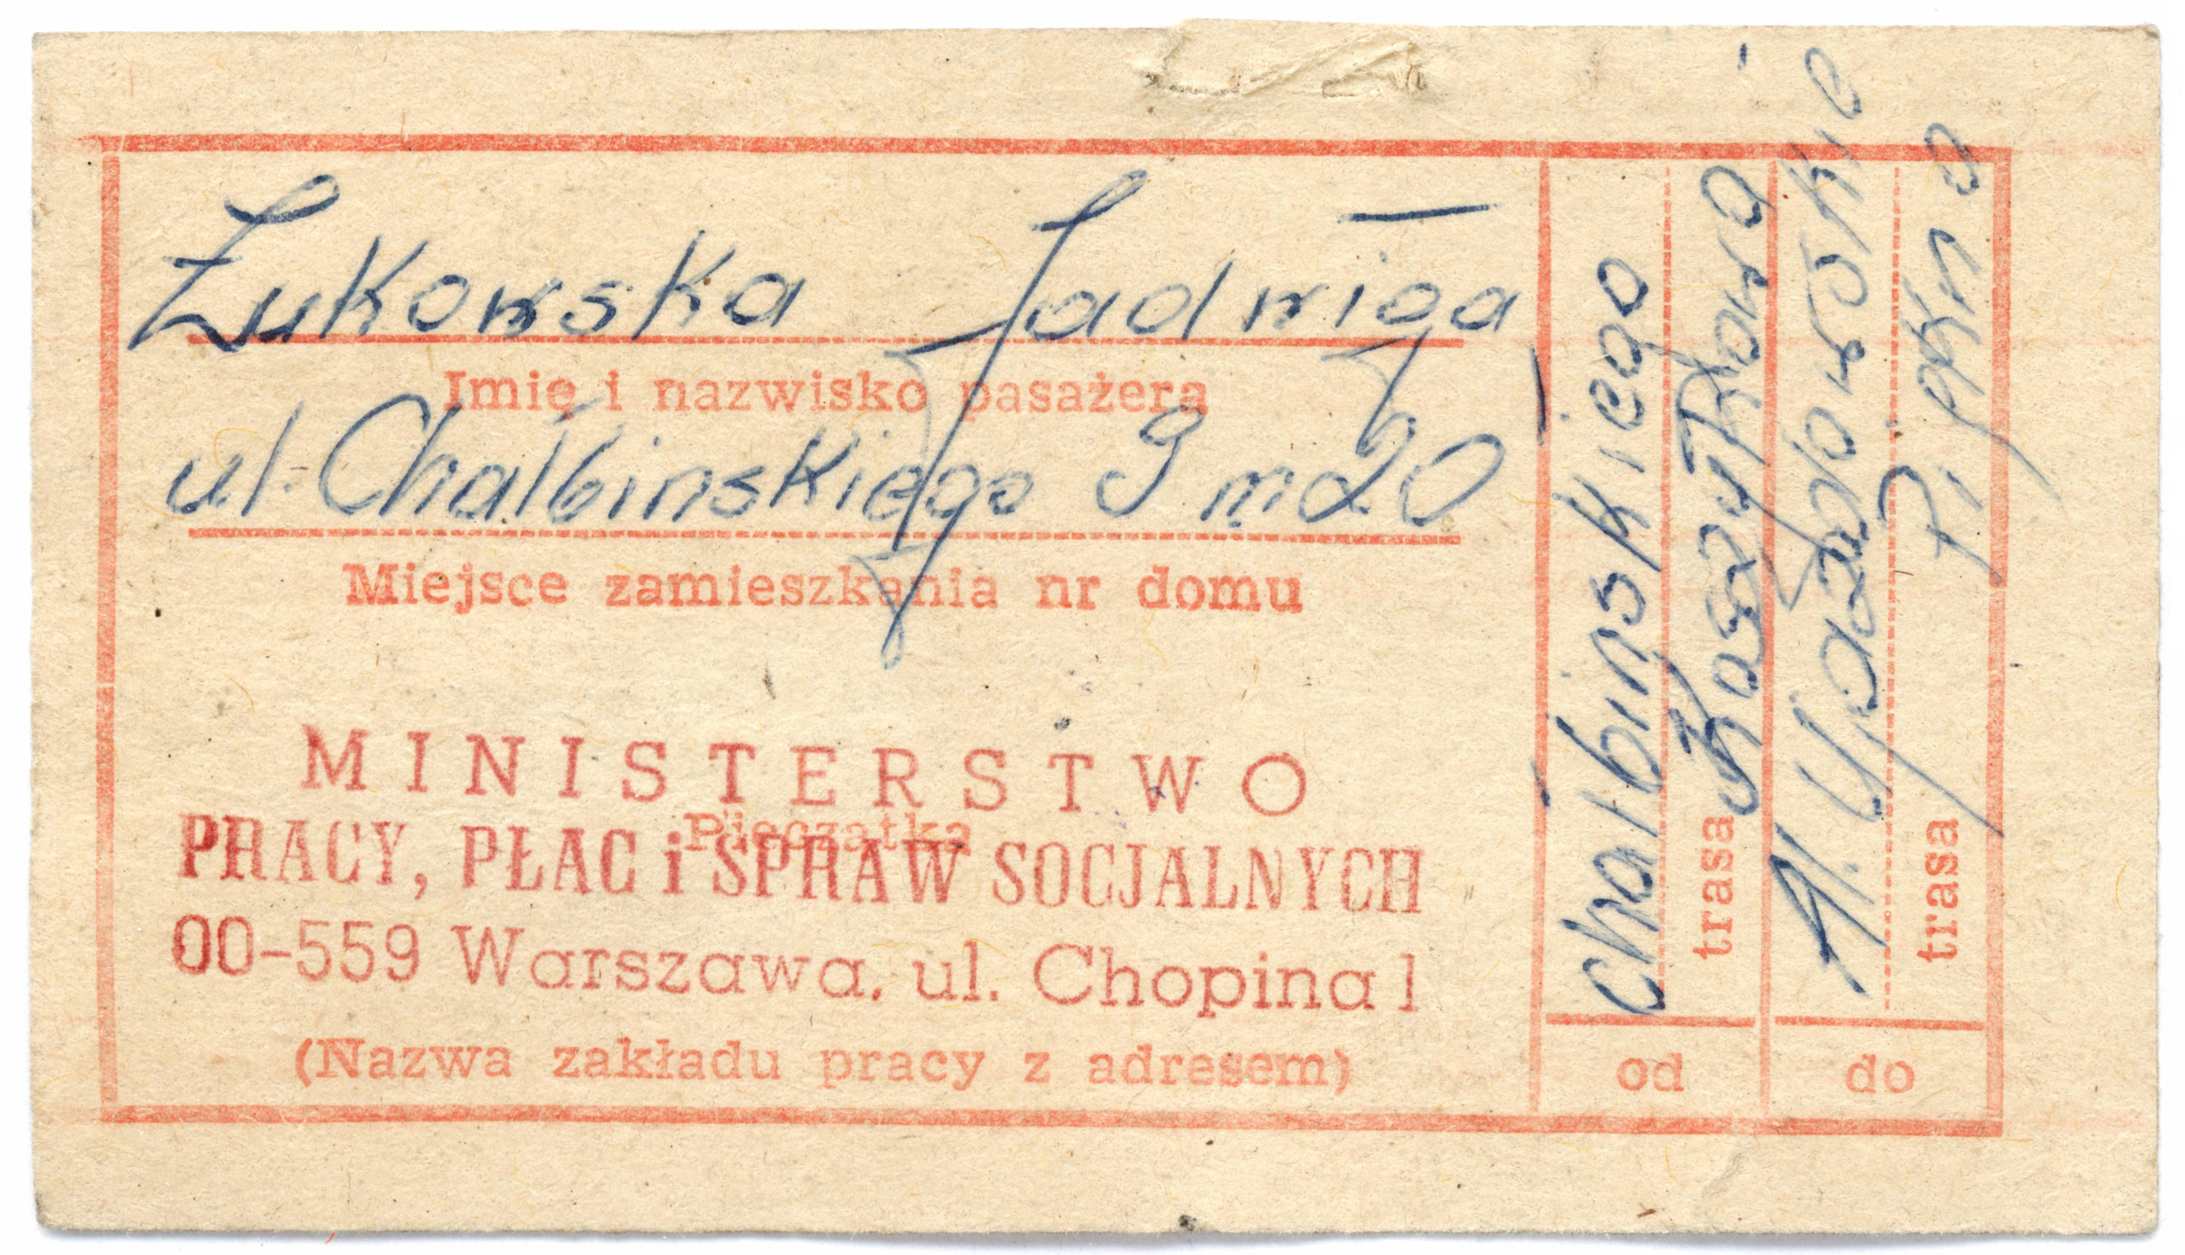 Żukowska Jadwiga
Imię i nazwisko pasażera
ul. Chałbińskiego 9 m 20
Miejsce zamieszkania nr domu
MINISTERSTWO
Pieczątka
PRACY, PŁAC i SPRAW SOCJALNYCH
00-559 Warszawa, ul. Chopina 1
(Nazwa zakładu pracy z adresem)
Chałbińskiego
trasa Koszykowa
od
Al. Ujazdowskie
trasa Piękna
do